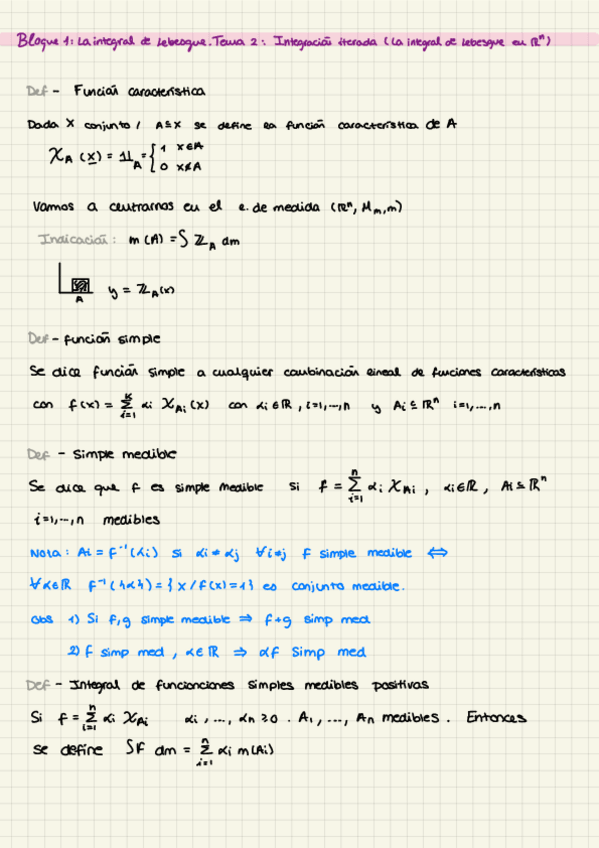 Bloque 1: La integral de Lebesgue. Tema 2: Integración iterada (La integral de Lebesgue en ℝⁿ)
Def - Función característica
Dada X conjunto / A⊆X se define la función característica de A
χ_A (x) = 𝟙_A = { 1 x∈A
0 x∉A
Vamos a centrarnos en el e. de medida (ℝⁿ, M_m, m)
Indicación: m(A) = ∫ χ_A dm
A y = χ_A(x)
Def - función simple
Se dice función simple a cualquier combinación lineal de funciones características
con f(x) = Σ_{i=1}^{k} αi χ_{Ai}(x) con αi ∈ ℝ, i=1,...,n y Ai ⊆ ℝⁿ i=1,...,n
Def - Simple medible
Se dice que f es simple medible si f = Σ_{i=1}^{n} αi χ_{Ai}, αi∈ℝ, Ai⊆ℝⁿ
i=1,...,n medibles
Nota: Ai = f⁻¹(αi) si αi ≠ αj ∀i≠j f simple medible ⟺
∀α∈ℝ f⁻¹({α}) = {x / f(x)=1} es conjunto medible.
Obs 1) Si f,g simple medible ⇒ f+g simp med
2) f simp med, α∈ℝ ⇒ αf simp med
Def - Integral de funcionciones simples medibles positivas
Si f = Σ_{i=1}^{n} αi χ_{Ai} αi, ..., αn ≥ 0. A₁, ..., An medibles. Entonces
se define ∫f dm = Σ_{i=1}^{n} αi m(Ai)